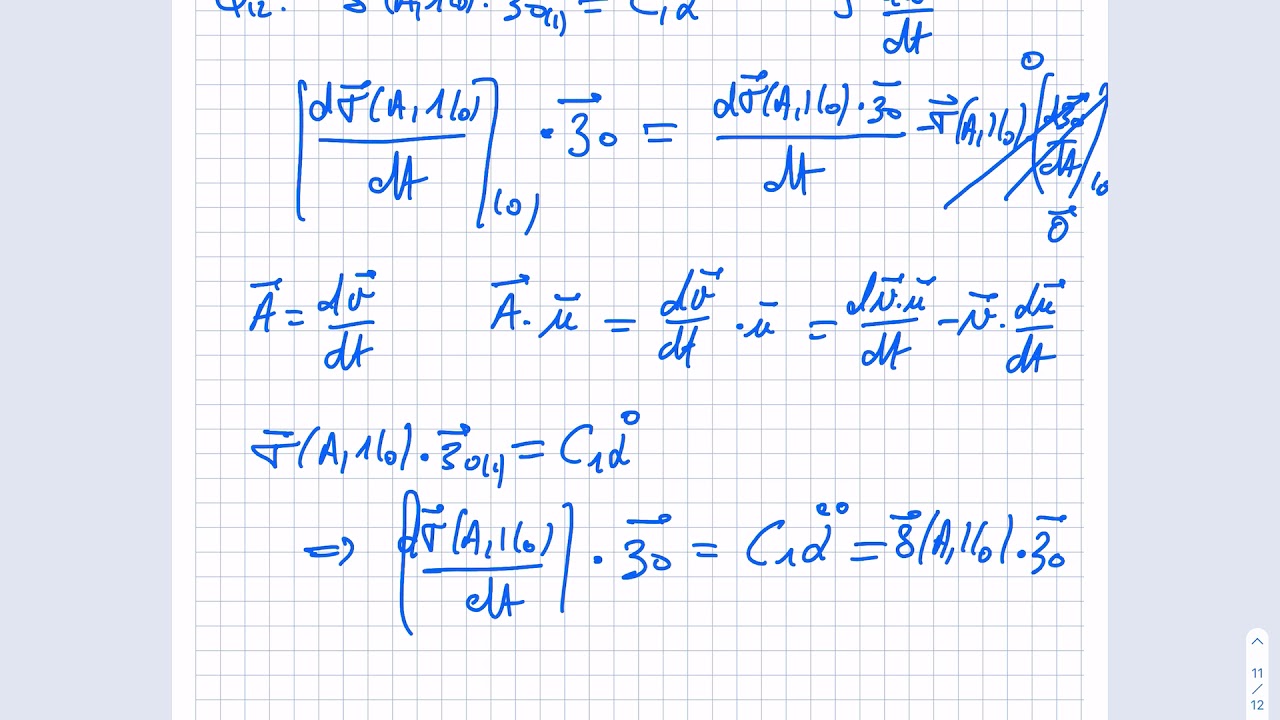 Q12. δ(A,1/0) · z0(1) = C₁α
d/dt
[dσ⃗(A,1/0)/dt](0) · z⃗0 = dσ⃗(A,1/0) · z⃗0/dt − σ⃗(A,1/0) (dz⃗0/dt)/0
0
0⃗
A⃗ = dv⃗/dt A⃗ · u⃗ = dv⃗/dt · u⃗ = dv⃗ · u⃗/dt − v⃗ · du⃗/dt
σ⃗(A,1/0) · z⃗0(1) = C₁α̇
⇒ [dσ⃗(A,1/0)/dt] · z⃗0 = C₁α̈ = δ⃗(A,1/0) · z⃗0
11
/
12